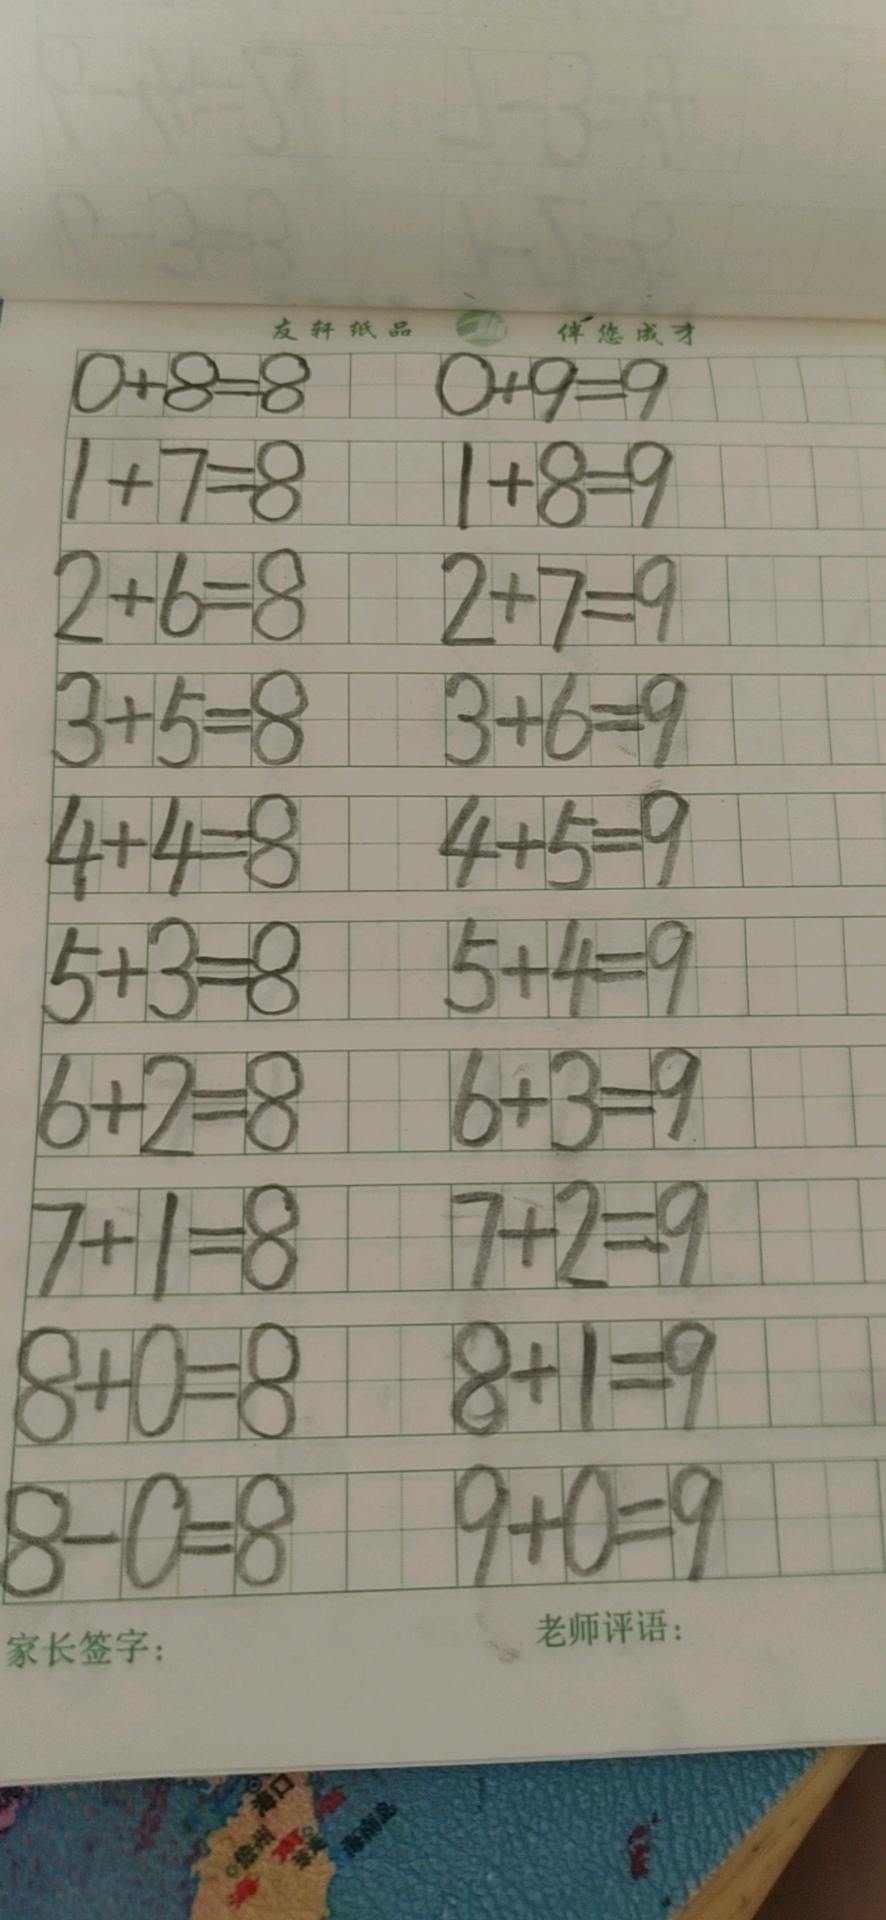 友轩纸品 伴您成才
0+8=8 0+9=9
1+7=8 1+8=9
2+6=8 2+7=9
3+5=8 3+6=9
4+4=8 4+5=9
5+3=8 5+4=9
6+2=8 6+3=9
7+1=8 7+2=9
8+0=8 8+1=9
8-0=8 9+0=9
家长签字: 老师评语:
海口
儋州
海南岛